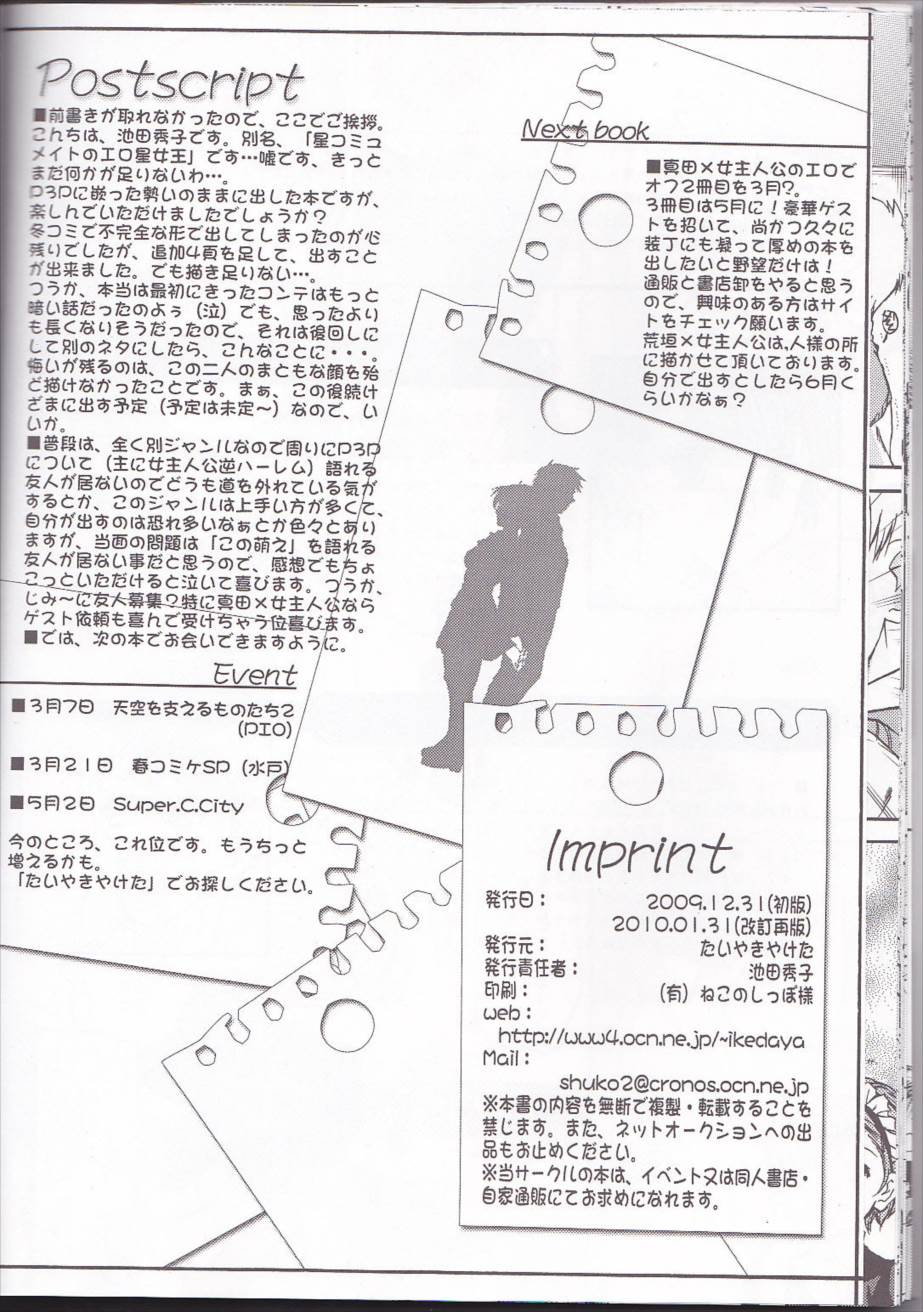 Postscript
■前書きが取れなかったので、ここでご挨拶。
こんちは、池田秀子です。別名、「星コミュ
メイトのエロ星女王」です…嘘です、きっと
まだ何かが足りないわ…。
P3Pに嵌った勢いのままに出した本ですが、
楽しんでいただけましたでしょうか？
冬コミで不完全な形で出してしまったのが心
残りでしたが、追加4頁を足して、出すこと
が出来ました。でも描き足りない…。
つうか、本当は最初にきったコンテはもっと
暗い話だったのよぅ（泣）でも、思ったより
も長くなりそうだったので、それは後回しに
して別のネタにしたら、こんなことに・・・。
悔いが残るのは、この二人のまともな顔を殆
ど描けなかったことです。まぁ、この後続け
ざまに出す予定（予定は未定～）なので、い
いか。
■普段は、全く別ジャンルなので周りにP3P
について（主に女主人公逆ハーレム）語れる
友人が居ないのでどうも道を外れている気が
するとか、このジャンルは上手い方が多くて、
自分が出すのは恐れ多いなぁとか色々とあり
ますが、当面の問題は「この萌え」を語れる
友人が居ない事だと思うので、感想でもちょ
こっといただけると泣いて喜びます。つうか、
じみ～に友人募集？特に真田×女主人公なら
ゲスト依頼も喜んで受けちゃう位喜びます。
■では、次の本でお会いできますように。
Event
■3月7日　天空を支えるものたち2
(PIO)
■3月21日　春コミケSP（水戸）
■5月2日　Super.C.City
今のところ、これ位です。もうちっと
増えるかも。
「たいやきやけた」でお探しください。
Next book
■真田×女主人公のエロで
オフ2冊目を3月？。
3冊目は5月に！豪華ゲス
トを招いて、尚かつ久々に
装丁にも凝って厚めの本を
出したいと野望だけは！
通販と書店卸をやると思う
ので、興味のある方はサイ
トをチェック願います。
荒垣×女主人公は、人様の所
に描かせて頂いております。
自分で出すとしたら6月く
らいかなぁ？
Imprint
発行日： 2009.12.31(初版)
2010.01.31(改訂再版)
発行元： たいやきやけた
発行責任者： 池田秀子
印刷： （有）ねこのしっぽ様
web：
http://www4.ocn.ne.jp/~ikedaya
Mail：
shuko2@cronos.ocn.ne.jp
※本書の内容を無断で複製・転載することを
禁じます。また、ネットオークションへの出
品もお止めください。
※当サークルの本は、イベント又は同人書店・
自家通販にてお求めになれます。